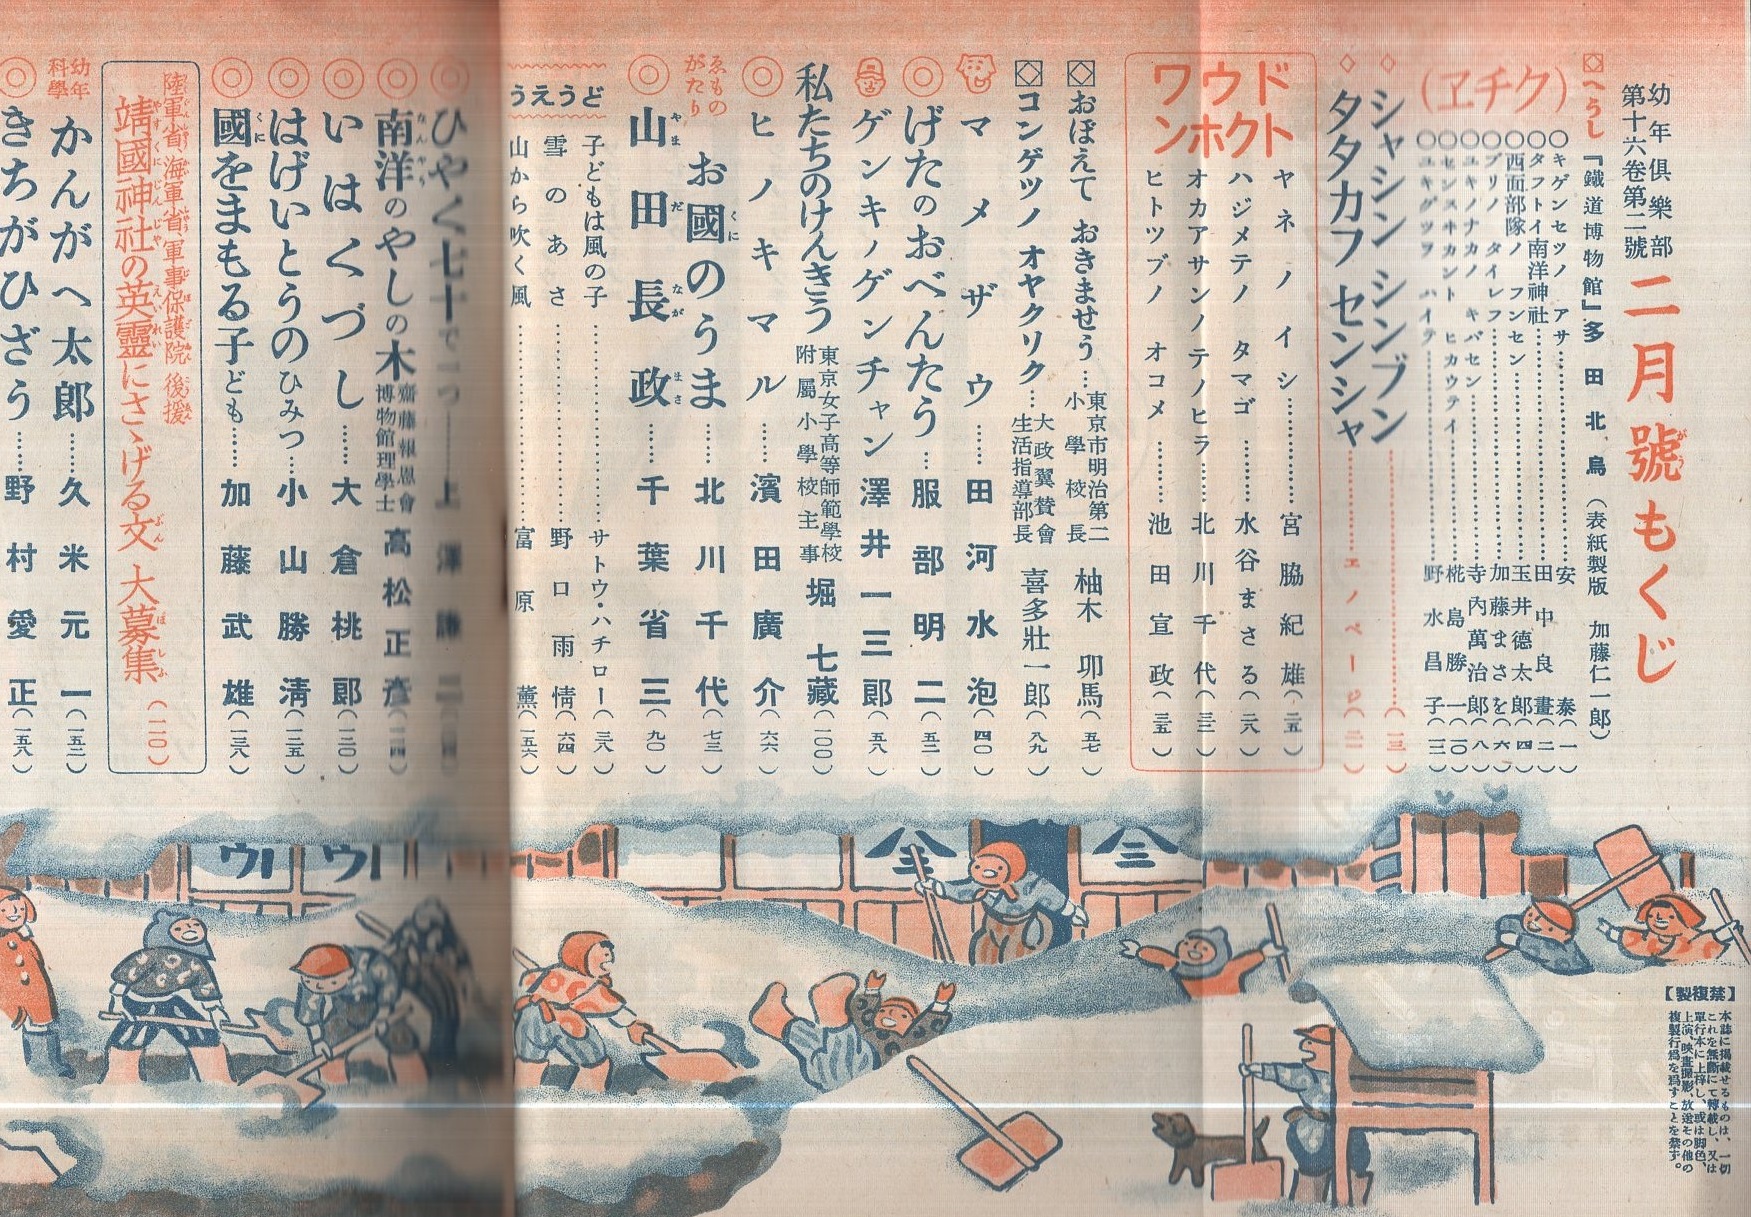 幼年倶樂部
第十六卷第二號
二月號もくじ
へうし『鐵道博物館』多田北烏(表紙製版 加藤仁一郎)
(クチヱ)
○キゲンセツノ アサ………安 泰(一)
○タフトイ南洋神社………田中良畫(二)
○西面部隊ノ フンセン………玉井德太郎(四)
○ブリノ タイレフ………加藤まさを(六)
○ユキノナカノ キバセン………寺內萬治郎(八)
○センスヰカント ヒカウテイ………椛島勝一(一〇)
○ユキグツヲ ハイテ………野水昌子(一二)
シャシン シンブン………(一三)
タタカフ センシャ………エノページ(二一)
ドクトワウホクン
ヤネノイシ………宮脇紀雄(二五)
ハジメテノ タマゴ………水谷まさる(二八)
オカアサンノテノヒラ………北川千代(三二)
ヒトツブノ オコメ………池田宣政(三五)
おぼえて おきませう…東京市明治第二小學校長 柚木卯馬(五七)
コンゲツノ オヤクリク…大政翼賛會生活指導部長 喜多壯一郎(八九)
マメザウ………田河水泡(四〇)
げたのおべんたう…服部明二(五二)
ゲンキノゲンチャン 澤井一三郎(五八)
私たちのけんきう 東京女子高等師範學校附屬小學校主事 堀七藏(一〇〇)
ヒノキマル……濱田廣介(六六)
ゑものがたり お國のうま……北川千代(七三)
山田長政……千葉省三(九〇)
どうえう
子どもは風の子………サトウ・ハチロー(三八)
雪のあさ………野口雨情(六四)
山から吹く風………富原薫(一五六)
ひやく七十で一つ
南洋のやしの木 齋藤報恩會博物館理學士 高松正彥(一二四)
いはくづし……大倉桃郎(一三〇)
はげいとうのひみつ…小山勝淸(一三五)
國をまもる子ども……加藤武雄(一三八)
陸軍省、海軍省、軍事保護院 後援
靖國神社の英靈にさゝげる文 大募集(一二〇)
幼年科學 かんがへ太郎……久米元一(一五二)
きちがひざう……野村愛正(一五八)
【禁複製】
本誌に掲載せるものは、一切
これを無斷にて轉載し、又は
單行本に上梓し、或は脚色、
上演、映畫撮影、放送その他の
複製行爲を爲すことを禁ず。